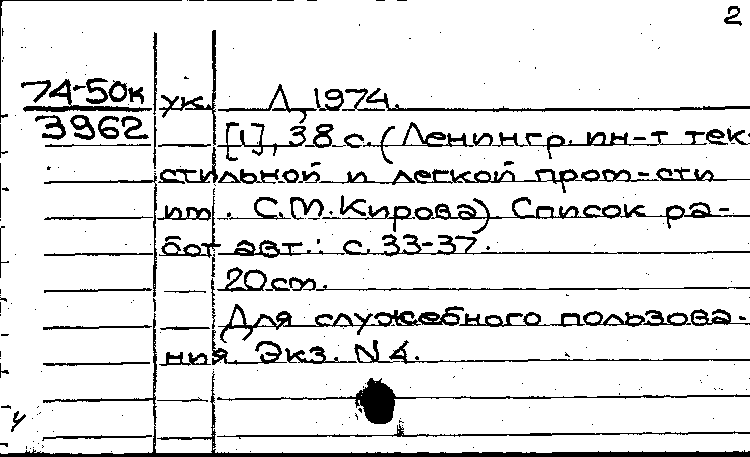 2
74-50к ук. Л, 1974.
3962 [1], 38 с. (Ленингр. ин-т тек-
стильной и легкой пром-сти
им. С.М.Кирова). Список ра-
бот авт.: с. 33-37.
20 см.
Для служебного пользова-
ния. Экз. N 4.